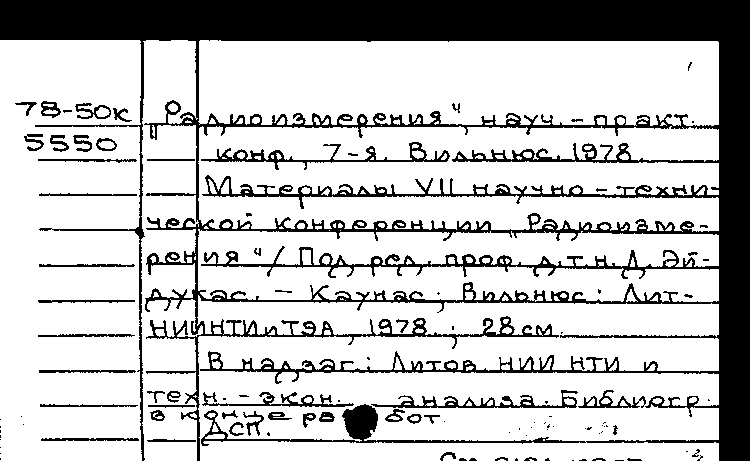 78-50к
5550
„Радиоизмерения", науч.-практ.
конф., 7-я. Вильнюс. 1978.
Материалы VII научно-техни-
ческой конференции „Радиоизме-
рения"/ Под ред. проф. д.т.н. Д. Эй-
дукас. - Каунас; Вильнюс: Лит-
НИИНТИиТЭА, 1978.; 28 см.
В надзаг.: Литов. НИИ НТИ и
техн.-экон. анализа. Библиогр.
в конце работ.
ДСП.